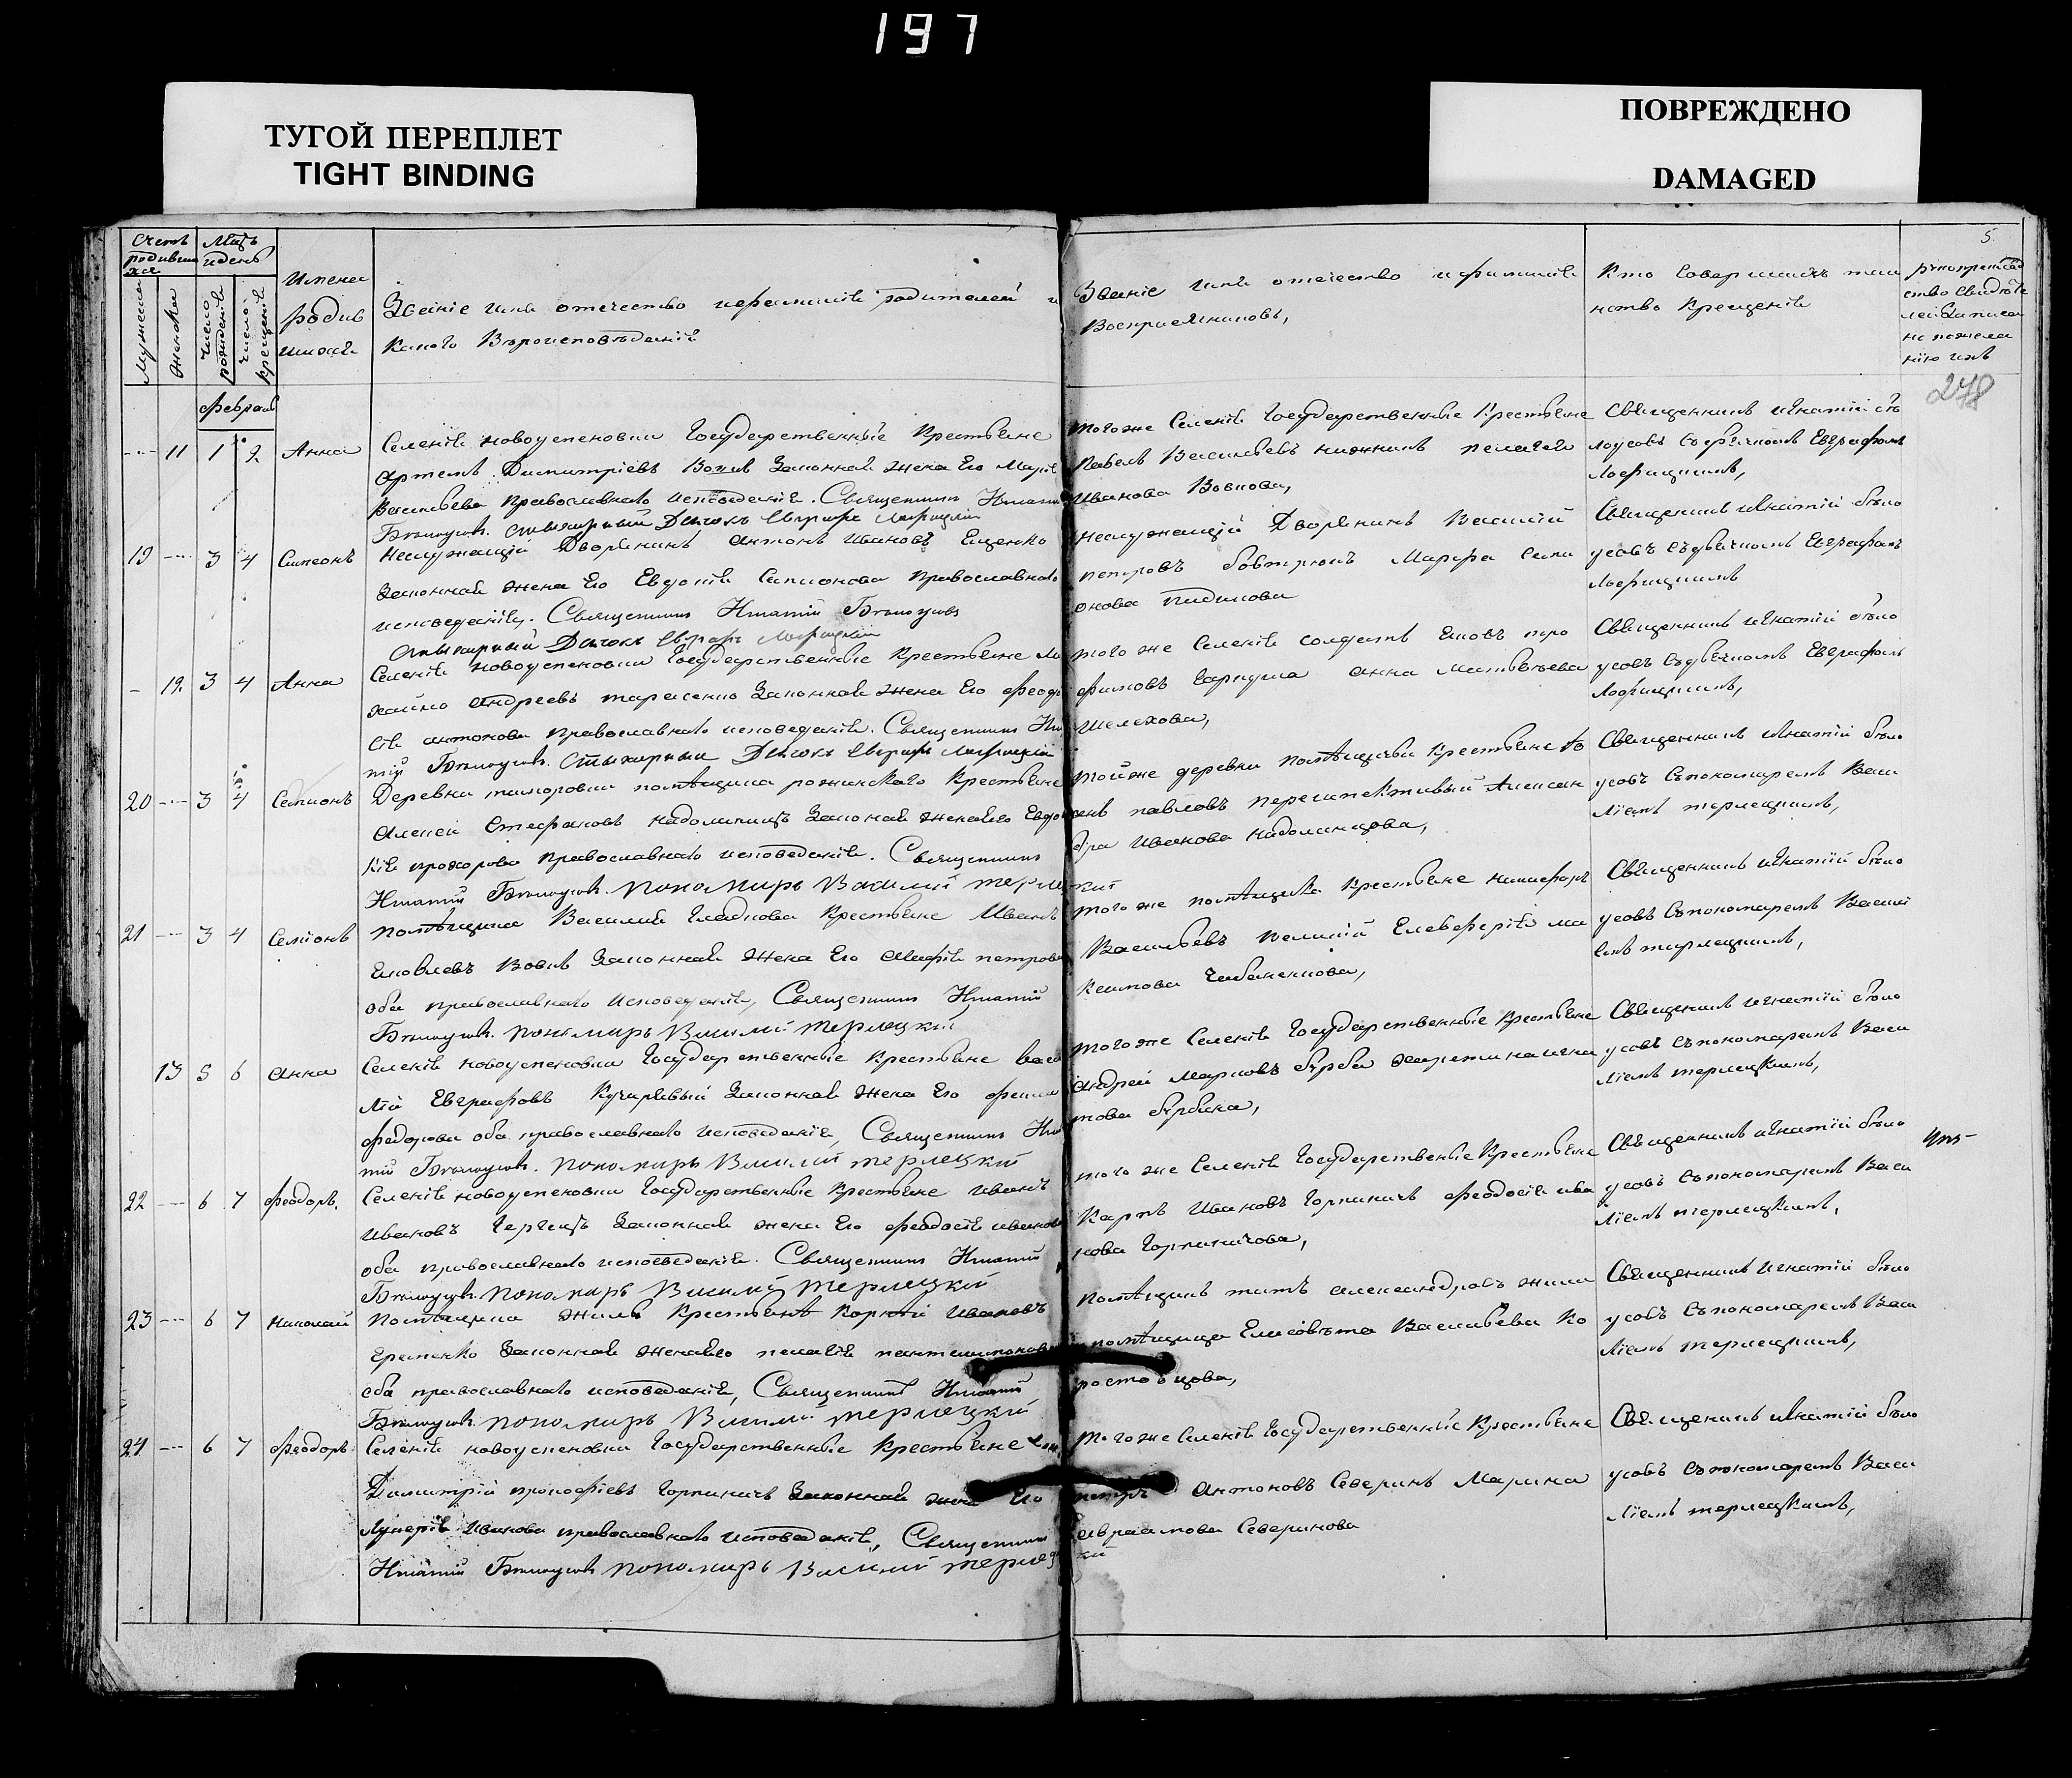 197
ТУГОЙ ПЕРЕПЛЕТ
TIGHT BINDING
ПОВРЕЖДЕНО
DAMAGED
5
278
Счетъ родившихся
Мужеска
Женска
Мцъ и день
число рожденія
число крещенія
Имена родившихъ
Званіе имя отечество и фамилія родителей и
какого Вѣроисповѣданія
Званіе имя отечество и фамилія
Воспріемниковъ,
Кто совершалъ таи
нство крещенія
рукоприкладство свидѣтелей записи
по желанію ихъ
Февраль
11 1 2 Анна
Селенія Новоуспеновки Государственные Крестьяне
Артемъ Димитріевъ Вовкъ Законная Жена Его Марія
Васильева Православнаго исповеданія. Священникъ Игнатій
Бѣлоусовъ. Стихарный Дьячокъ Евграфъ
Того же Селенія Государственные Крестьяне
Павелъ Васильевъ Пелагея
Иванова Вовкова,
Священникъ Игнатій Бѣ
лоусовъ съ дьячкомъ Евграфомъ
19 3 4 Симеонъ
Неслужащій Дворянинъ Антонъ Ивановъ Ещенко
Законная Жена Его Евдокія Симионова Православнаго
исповеданія. Священникъ Игнатій Бѣлоусовъ
Стихарный Дьячокъ Евграфъ
Неслужащій Дворянинъ Василій
Петровъ Марфа Сими
онова
Священникъ Игнатій Бѣло
усовъ съ дьячкомъ Евграфомъ
12 3 4 Анна
Селенія Новоуспеновки Государственные Крестьяне Ми
хайло Андреевъ Тарасенко Законная Жена Его Феодо
сія Антонова Православнаго исповеданія. Священникъ Игна
тій Бѣлоусовъ. Стихарный Дьячокъ Евграфъ
того же Селенія солдатъ Яковъ Тро
фимовъ Гаркуша Анна Матвѣева
Шелехова,
Священникъ Игнатій Бѣло
усовъ съ дьячкомъ Евграфомъ
20 3 4 Семионъ
Деревни помѣщика Крестьяне
Алексей Стефановъ Законая Жена Его Евдо
кія Прохорова Православнаго исповеданія. Священникъ
Игнатій Бѣлоусовъ. Пономарь Василій Терлецкій
той же деревни помѣщичьи Крестьяне
Павловъ Алексан
дра Иванова
Священникъ Игнатій Бѣло
усовъ съ пономаремъ Васи
ліемъ Терлецкимъ,
21 3 4 Семіонъ
Помѣщика Василія Гладкова Крестьяне Иванъ
Яковлевъ Вовкъ Законная Жена Его Петрова
оба православнаго исповеданія, Священникъ Игнатій
Бѣлоусовъ. Пономарь Василій Терлецкій
того же помѣщика Крестьяне Никифоръ
Васильевъ Великій Елевферія Ма
ксимова Чабаненкова,
Священникъ Игнатій Бѣло
усовъ съ пономаремъ Васили
емъ Терлецкимъ,
13 5 6 Анна
Селенія Новоуспеновки Государственные Крестьяне Васи
лій Евграфовъ Кучерявый Законная Жена Его
Федорова оба православнаго исповеданія, Священникъ Игна
тій Бѣлоусовъ. Пономарь Василій Терлецкій
того же Селенія Государственные Крестьяне
Андрей Марковъ Бурба Харитина Игна
това Бурбина,
Священникъ Игнатій Бѣло
усовъ съ пономаремъ Васи
ліемъ Терлецкимъ,
22 6 7 Феодоръ.
Селенія Новоуспеновки Государственные Крестьяне Иванъ
Ивановъ Законная Жена Его Феодосія Иванова
оба православнаго исповеданія. Священникъ Игнатій
Бѣлоусовъ. Пономарь Василій Терлецкій
того же Селенія Государственые Крестьяне
Карпъ Ивановъ Горпиничъ Феодосія Ива
нова Горпиничова,
Священникъ Игнатій Бѣло
усовъ съ пономаремъ Васи
ліемъ Терлецкимъ,
23 6 7 Николай
Помѣщика Крестьяне Ивановъ
Еременко Законная Жена Его Пелагія Пантелимонова
оба православнаго исповеданія, Священникъ Игнатій
Бѣлоусовъ. Пономарь Василій Терлецкій
Помѣщикъ Титъ Александровъ
помѣщица Елисавѣта Васильева Ко
ростовцова,
Священникъ Игнатій Бѣло
усовъ съ пономаремъ Васи
ліемъ Терлецкимъ,
24 6 7 Феодоръ
Селенія Новоуспеновки Государственные Крестьяне
Димитрій Прокофіевъ Горпиничъ Законная Жена Его
Лукерія Иванова православнаго исповеданія, Священникъ
Игнатій Бѣлоусовъ Пономарь Василій Терлецкій
Того же Селенія Государственные Крестьяне
Петръ Антоновъ Северинъ Марина
Авраамова Северинова
Священникъ Игнатій Бѣло
усовъ съ пономаремъ Васи
ліемъ Терлецкимъ,